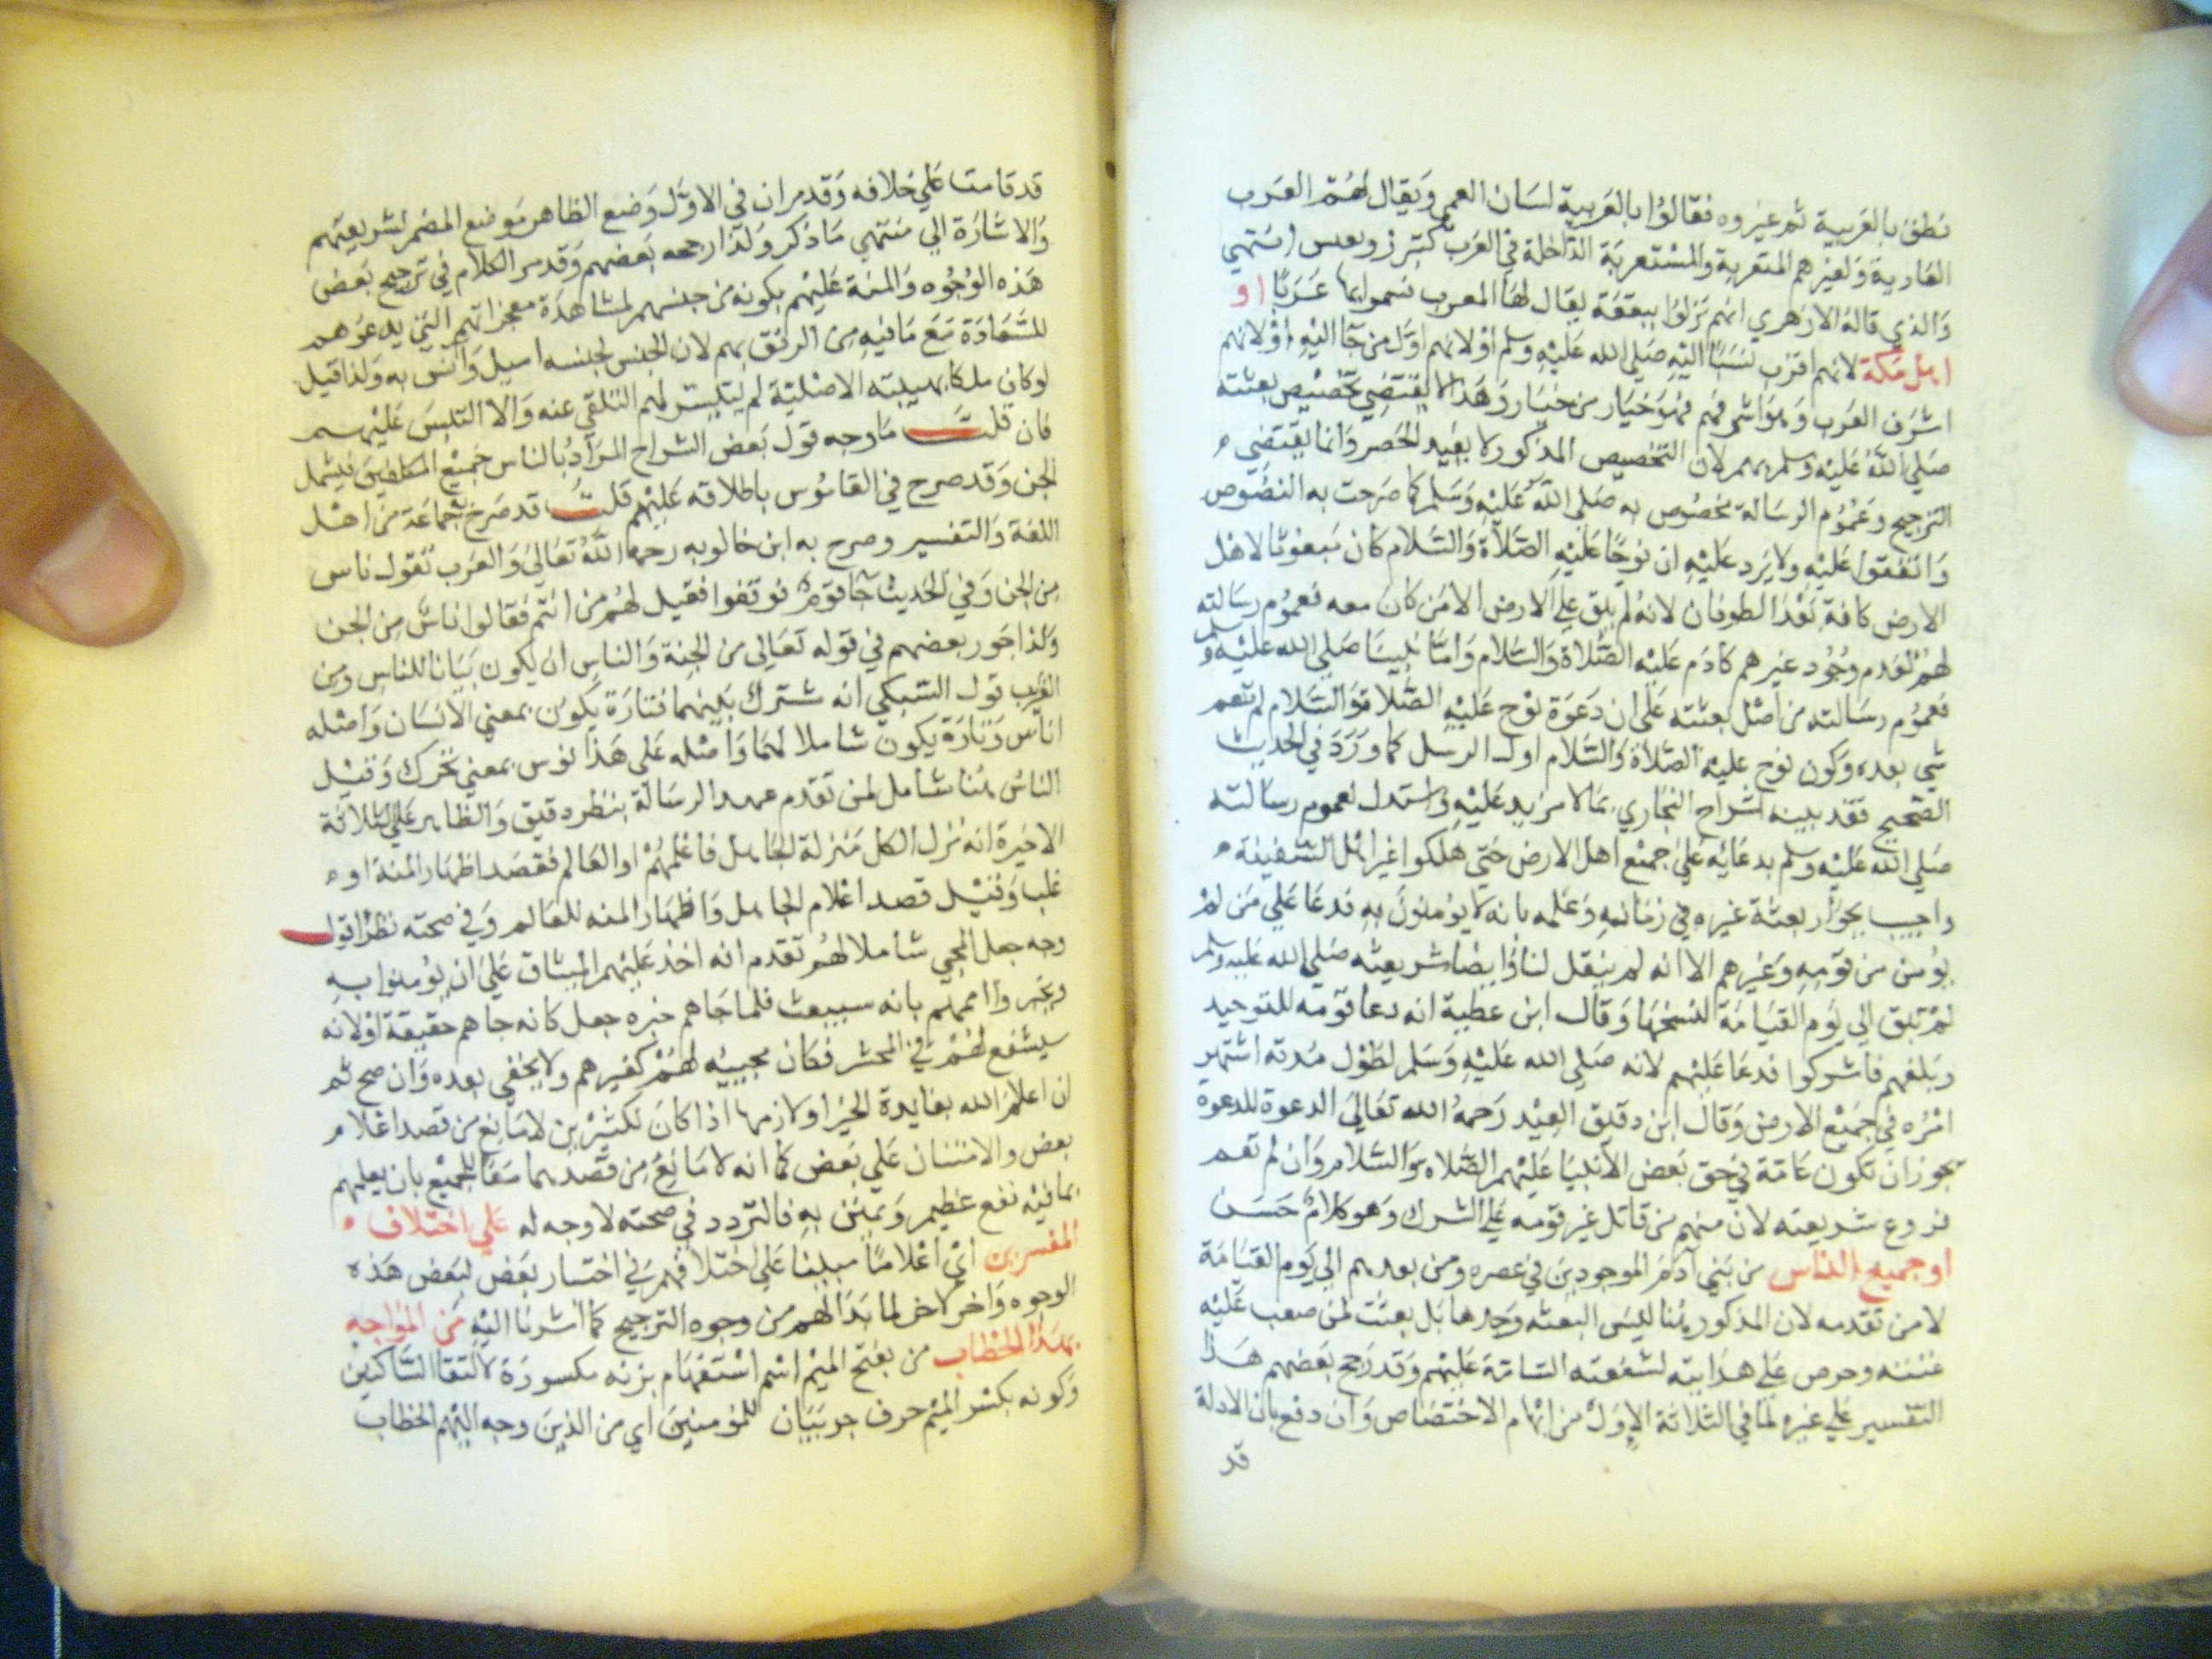 نطق بالعربية ثم غيروه فقالوا بالعربية لسان العجم ويقال لهم العرب
العاربة ولغيرهم المتعربة والمستعربة الداخلة في العرب انتهي
والذي قاله الازهري انهم نزلوا ببقعة يقال لها العرب فسموا بها عربا او
اهل مكة لانهم اقرب نسبا اليه صلي الله عليه وسلم اولانهم اول من جا اليه اولانهم
اشرف العرب وبنواهاشم فهو خيار من خيار وهذا لا يقتضي تخصيص بعثته
صلي الله عليه وسلم بهم لان التخصيص المذكور لا يفيد الحصر وانما يقتضي
الترجيح وعموم الرسالة مخصوص به صلي الله عليه وسلم كما صرحت به النصوص
واتفقوا عليه ولا يرد عليه ان نوحا عليه الصلاة والسلام كان مبعوثا لاهل
الارض كافة بعد الطوفان لانه لم يبق علي الارض الا من كان معه فعموم رسالته
لهم لعدم وجود غيرهم كادم عليه الصلاة والسلام واما نبينا صلي الله عليه وسلم
فعموم رسالته من اصل بعثته علي ان دعوة نوح عليه الصلاة والسلام لم تعم
بعده وكون نوح عليه الصلاة والسلام اول الرسل كما ورد في الحديث
الصحيح فقد بينه شراح البخاري بما لا مزيد عليه واستدل لعموم رسالته
صلي الله عليه وسلم بدعايه علي جميع اهل الارض حتي هلكوا غير اهل السفينة
واجيب بجواز بعثة غيره في زمانه وعلمه بانه لا يؤمنون به فدعا علي من لم
يؤمن من قومه وغيرهم الا انه لم ينقل لنا ذا ايضا شريعته صلي الله عليه وسلم
لم تبق الي يوم القيامة لنسخها وقال ابن عطية انه دعا قومه للتوحيد
وبلغهم فاشركوا فدعا عليهم لانه صلي الله عليه وسلم لطول مدته اشتهر
امره في جميع الارض وقال ابن دقيق العيد رحمه الله تعالي الدعوة للدعوة
يجوز ان تكون عامة في حق بعض الانبيا عليهم الصلاه والسلام وان لم تعم
فروع شريعته لان منهم من قاتل غير قومه علي الشرك وهو كلام حسن
او جميع الناس من بني آدم الموجودين في عصره ومن بعدهم الي يوم القيامة
لا من تقدمه لان المذكور هنا ليس البعثه وحدها بل بعثت لمن صعب عليه
عنتنه وحرص علي هدايته لشفقته التامة عليهم وقد رجح بعضهم هذا
التفسير علي غيره لما في الثلاثة الاول من ابهام الاختصاص وان دفع بان الادلة
قد
قد قامت علي خلافه وقد مران في الاول وضع الظاهر موضع المضمر لشريعتهم
والاشارة الي منتهي ما ذكر ولذا رجحه بعضهم وقد مر الكلام في ترجيح بعض
هذه الوجوه والمنة عليهم بكونه من جنسهم لمشاهدة معجزاتهم التي يدعوهم
للسعادة مع ما فيه من الرفق بهم لان الجنس لجنسه اميل وآنس به ولذا قيل
لوكان ملكا بهيبته الاصلية لم يتيسر لهم التلقي عنه والا التبس عليهم
فان قلت ما وجه قول بعض الشراح المراد بالناس جميع المكلفين فيشمل
الجن وقد صرح في القاموس باطلاقه عليهم قلت قد صرح جماعة من اهل
اللغة والتفسير وصرح به ابن خالويه رحمه الله تعالي والعرب تقول ناس
من الجن وفي الحديث جا قوم فوقفوا فقيل لهم من انتم فقالوا اناس من الجن
ولذا جوز بعضهم في قوله تعالي من الجنة والناس ان يكون بيانا للناس ومن
الغريب قول السبكي انه مشترك بينهما فتارة يكون بمعني الانسان واصله
اناس وتارة يكون شاملا لهما واصله علي هذا نوس بمعني تحرك وقيل
الناس هنا شامل لمن تقدم عهد الرسالة بنظر دقيق والظاهر علي الثلاثة
الاخيرة انه نزل الكل منزلة الجاهل فاعلمهم او العالم فقصد اظهار المنة او
غلب وقيل قصد اعلام الجاهل واظهار المنه للعالم وفي صحته نظر اقول
وجه جعل المجي شاملا لهم تقدم انه اخذ عليهم الميثاق علي ان يؤمنوا به
واممهم بانه سيبعث فلما جاهم خبره جعل كانه جاهم حقيقة اولانه
سيشفع لهم في المحشر فكان مجييه لهم كغيرهم ولا يخفي بعده وان صح ثم
ان اعلام الله بفايدة الخبر اولازمها اذا كان لكثيرين لا مانع من قصد اعلام
بعض والامتنان علي بعض كما انه لا مانع من قصدهما معا للجميع بان يعلمهم
بما فيه نفع عظيم ويمتن به فالتردد في صحته لا وجه له علي اختلاف
المفسرين اي اعلاما مبنيا علي اختلافهم في اختيار بعض لبعض هذه
الوجوه واخر لاخر لما بدا لهم من وجوه الترجيح كما اشرنا اليه من المواجه
بهذا الخطاب من بفتح الميم اسم استفهام بزنه مكسورة لالتقا الساكنين
وكونه بكسر الميم حرف جر بيان للمؤمنين اي من الذين وجه اليهم الخطاب